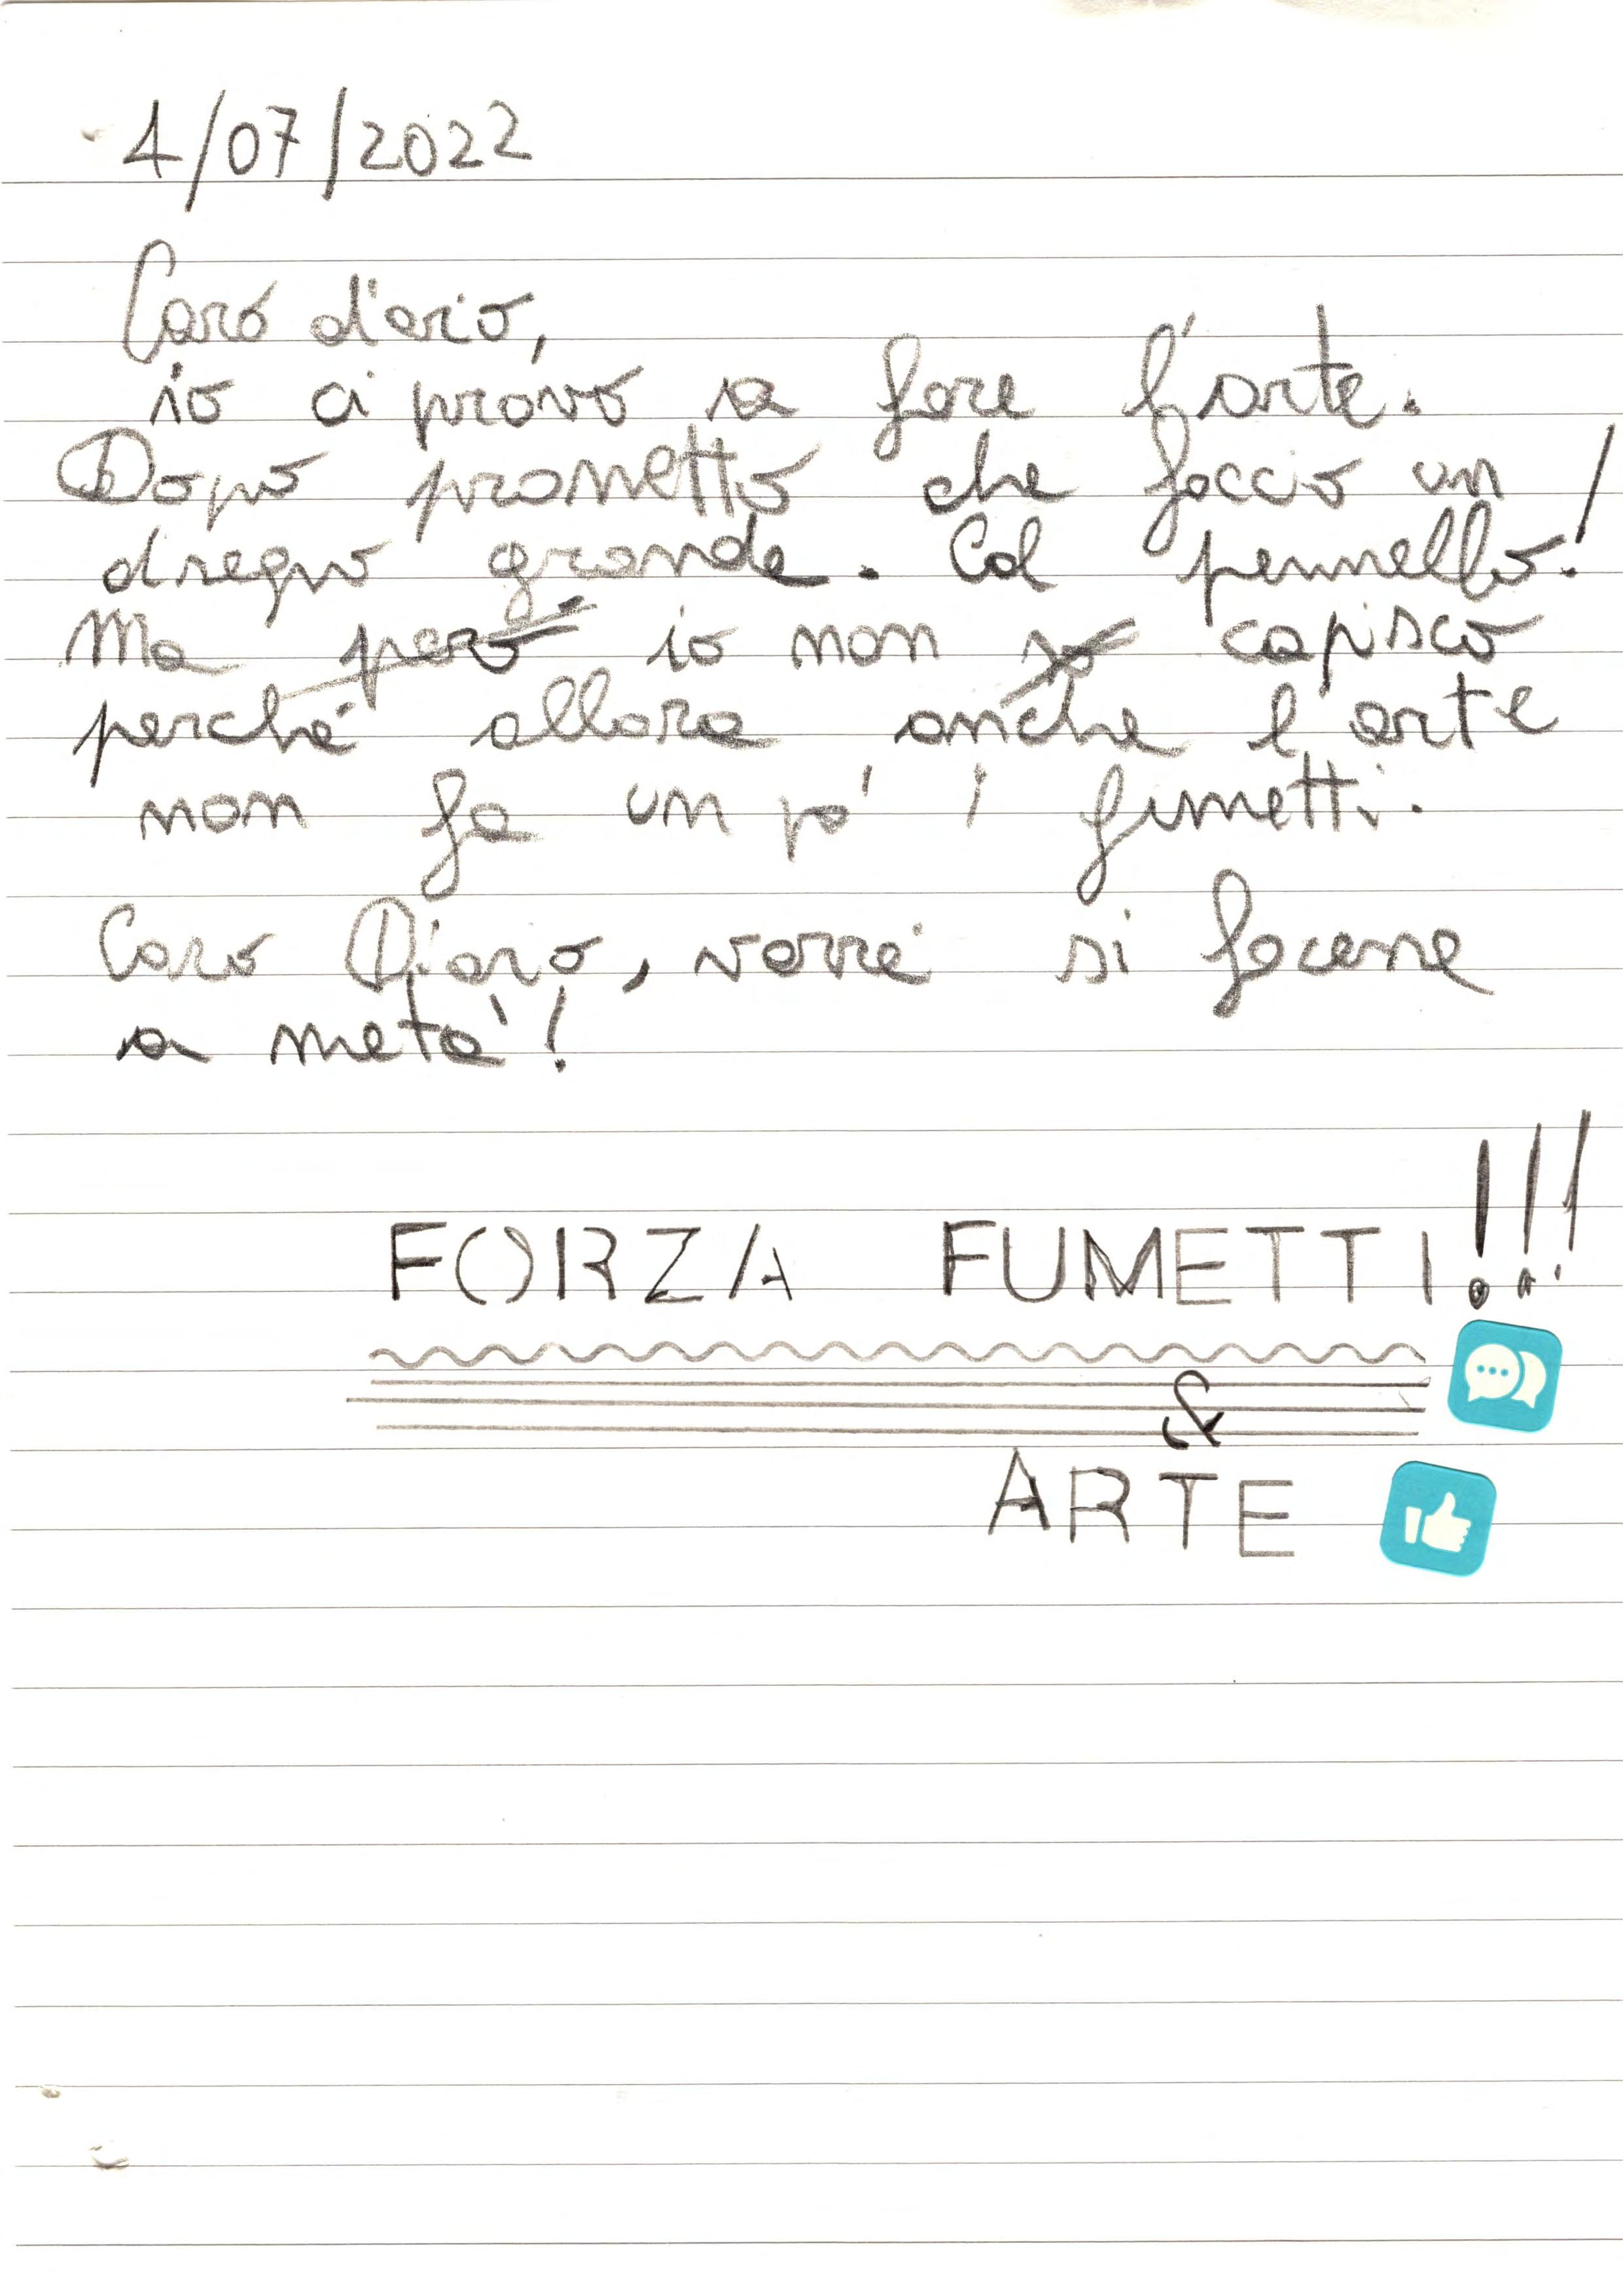 4/07/2022
Caro diario,
io ci provo a fare l'arte.
Dopo prometto che faccio un
disegno grande. Col pennello!
Ma però io non so capisco
perché allora anche l'arte
non fa un pò i fumetti.
Caro Diario, vorrei si facesse
a metà!
FORZA FUMETTI!!!
&
ARTE